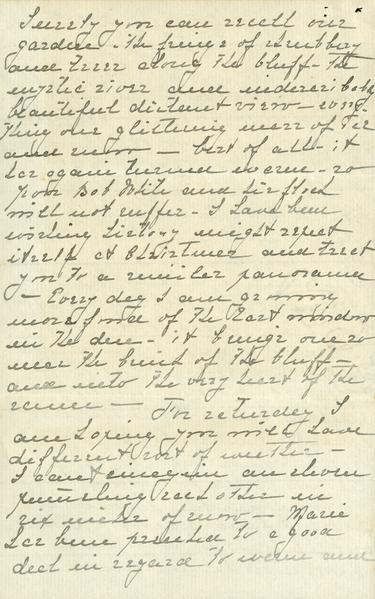 Surely you can recall our
garden - the fringe of shrubbery
and trees along the bluff - the
mystic river and indescribably
beautiful distant view - every-
thing one glittering mass of ice
and snow - best of all - it
has again turned warm - so
your Bob White and his flock
will not suffer - I have been
wishing history might repeat
itself at Christmas and treat
you to a similar panorama
- Every day I am growing
more fond of the East window
in the den - it brings one so
near the brink of the bluff -
and into the very heart of the
scene - For Saturday I
am hoping you will have
different sort of weather -
I can't imagine an eleven
punching each other in
six inches of snow - Marie
has been preached to a good
deal in regard to warm and